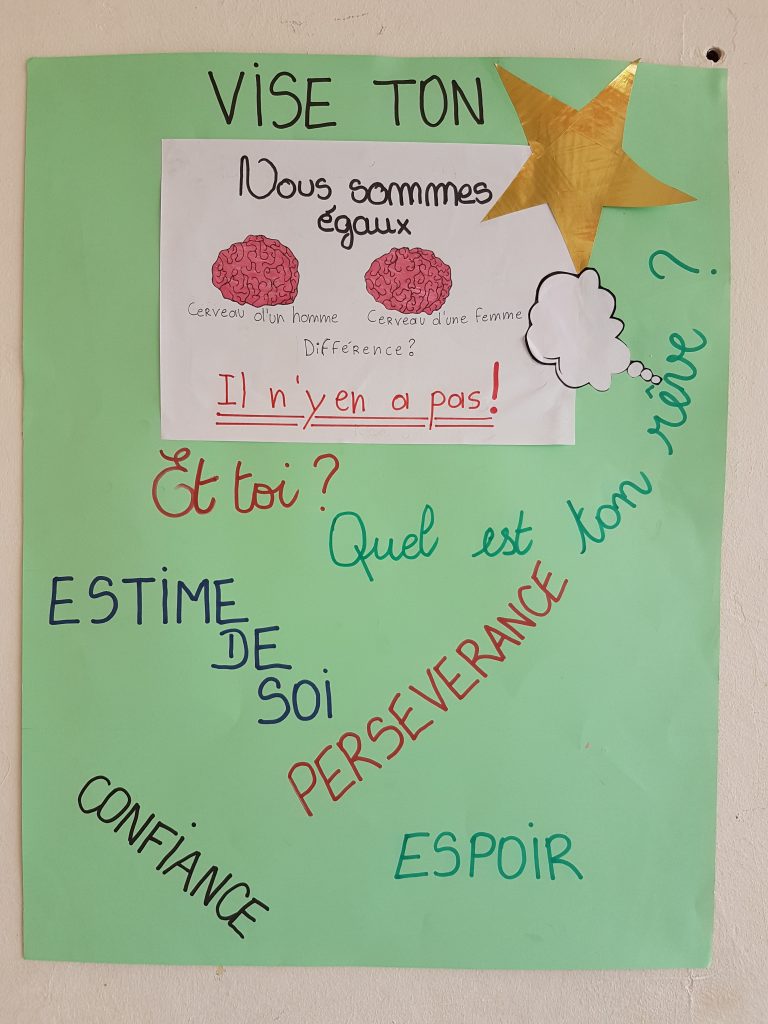 VISE TON
Nous sommes
égaux
Cerveau d'un homme
Cerveau d'une femme
Différence?
Il n'y en a pas!
Et toi ?
Quel est ton rêve ?
ESTIME
DE
SOI
PERSEVERANCE
CONFIANCE
ESPOIR